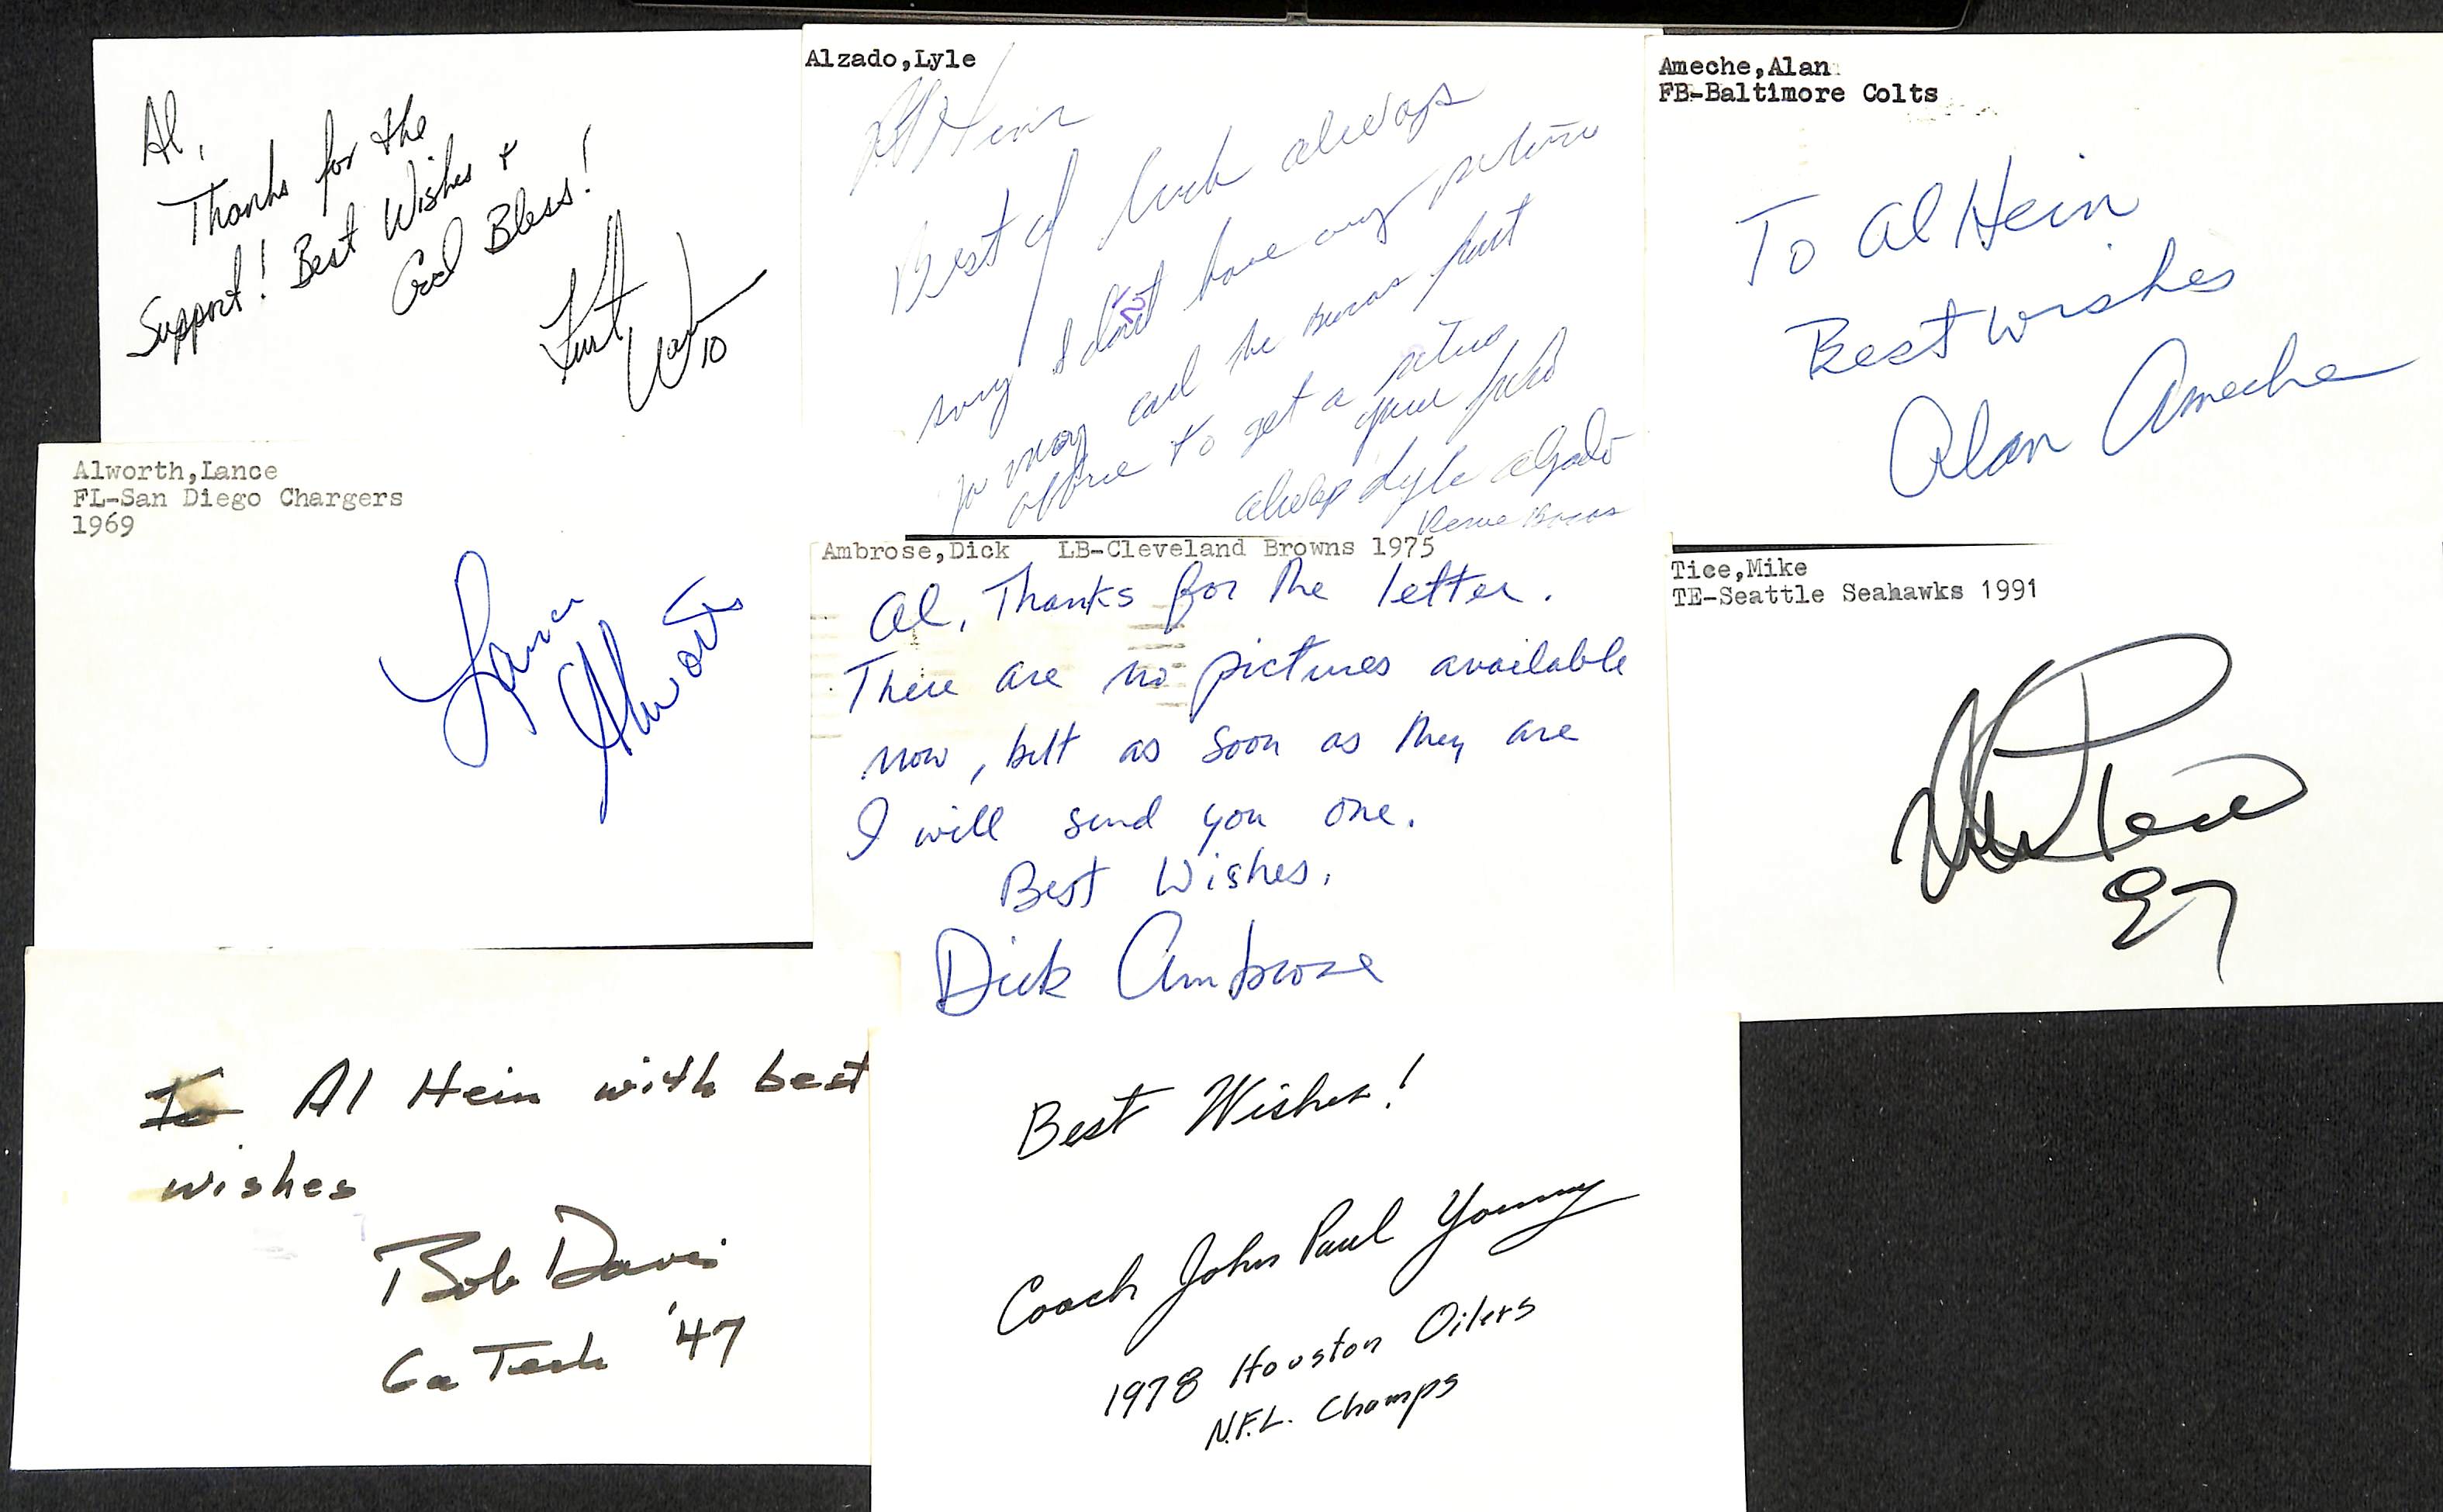 Al,
Thanks for the
Support! Best Wishes &
God Bless!
Kurt
10
Alzado,Lyle
Al Hein
Best of luck always
sorry I don't have any picture
you may call the Broncos front
office to get a picture
your friend
always Lyle Alzado
Denver Broncos
Ameche,Alan
FB-Baltimore Colts
To Al Hein
Best wishes
Alan Ameche
Alworth,Lance
FL-San Diego Chargers
1969
Lance
Alworth
Ambrose,Dick LB-Cleveland Browns 1975
Al, Thanks for the letter.
There are no pictures available
now, but as soon as they are
I will send you one.
Best Wishes,
Dick Ambrose
Tice,Mike
TE-Seattle Seahawks 1991
Mike Tice
87
To Al Hein with best
wishes
Bob Davis
Ga Tech '47
Best Wishes!
Coach John Paul Young
1978 Houston Oilers
N.F.L. Champs